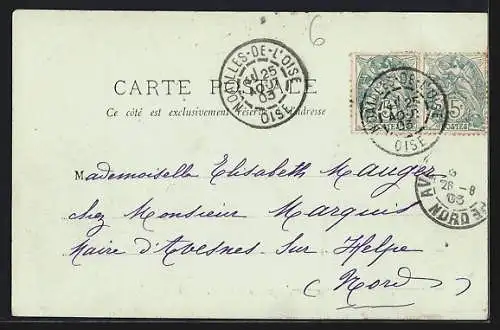 6
NOAILLES-DE-L'OISE
25
AOUT
03
OISE
CARTE POSTALE
Ce côté est exclusivement réservé à l'adresse
NOAILLES-DE-L'OISE
25
OISE
5c
POSTES
Mademoiselle Elisabeth Mauger
chez Monsieur Marquis
Maire d'Avesnes-sur-Helpe
(Nord)
26-8
03
NORD